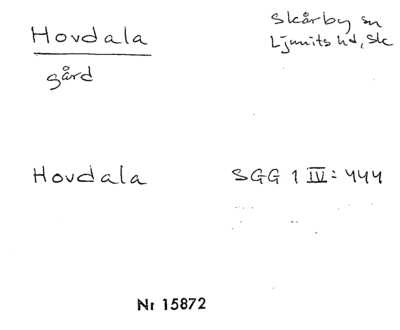 Hovdala
gård
Skårby sn
Ljunits hd, Sk
Hovdala
SGG 1 IV: 444
Nr 15872